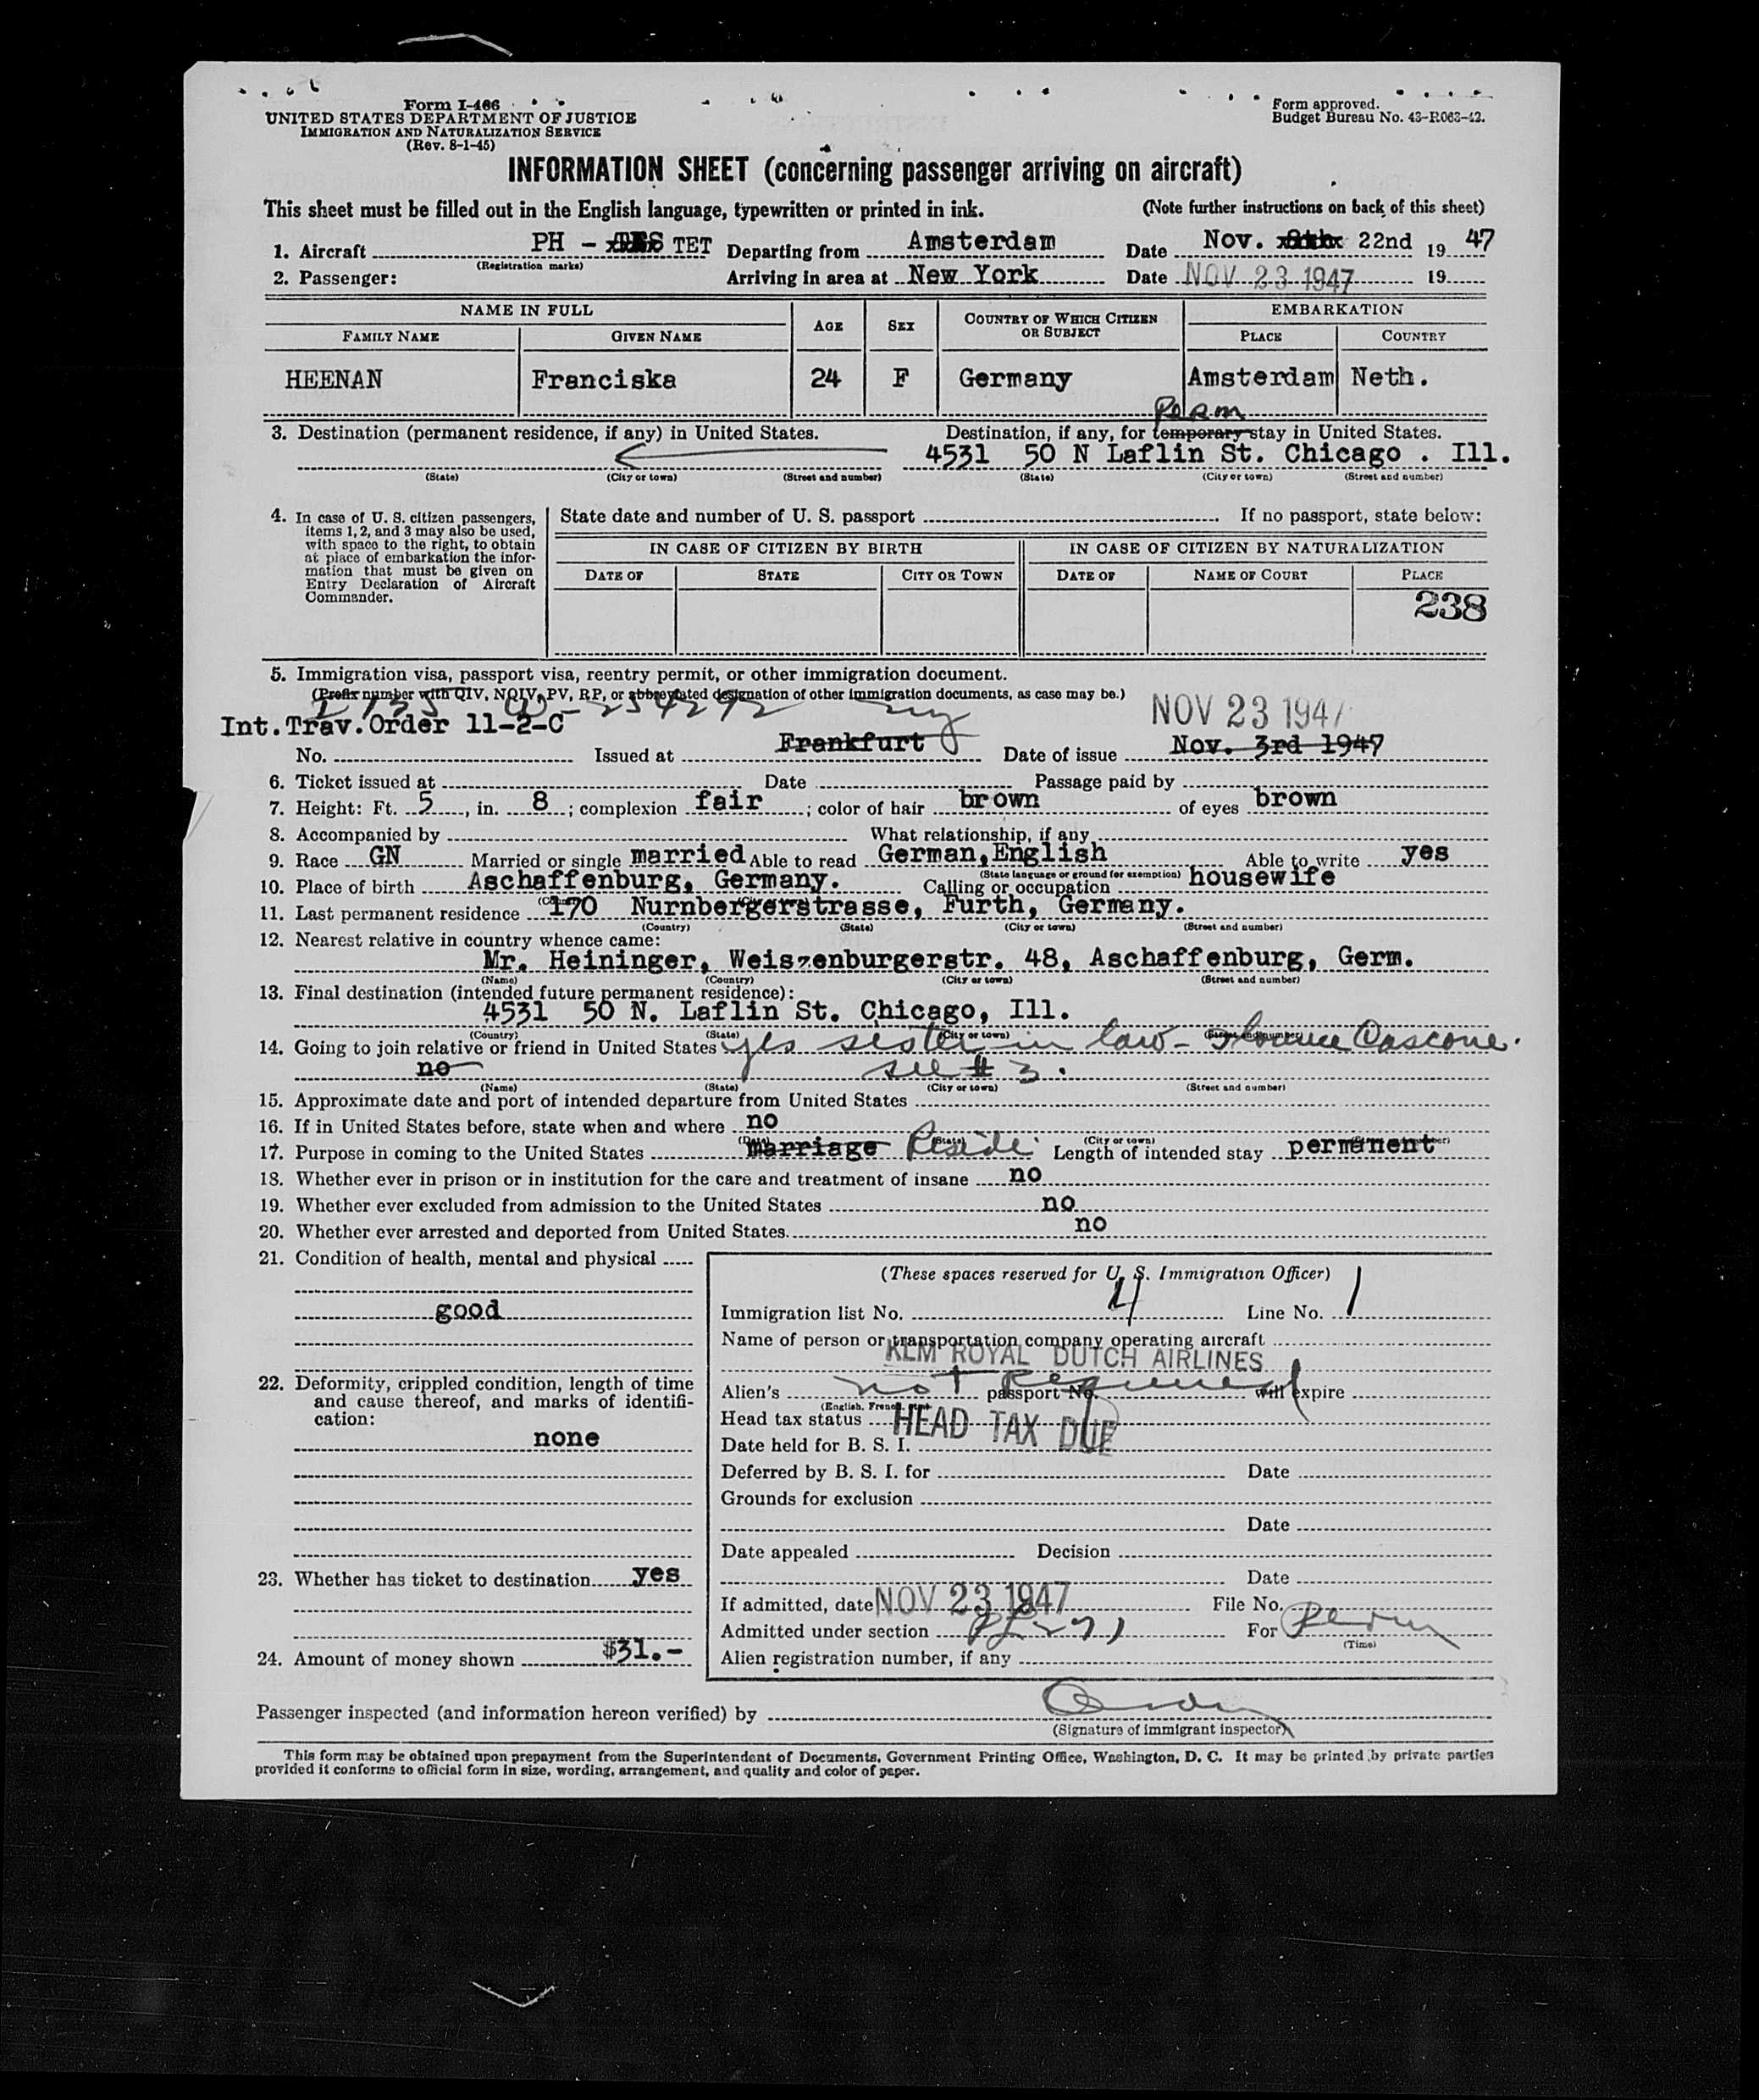 Form I-466
UNITED STATES DEPARTMENT OF JUSTICE
IMMIGRATION AND NATURALIZATION SERVICE
(Rev. 8-1-45)
Form approved.
Budget Bureau No. 43-R063-42.
INFORMATION SHEET (concerning passenger arriving on aircraft)
This sheet must be filled out in the English language, typewritten or printed in ink. (Note further instructions on back of this sheet)
1. Aircraft PH - TET Departing from Amsterdam Date Nov. 22nd 19 47
(Registration marks)
2. Passenger: Arriving in area at New York Date NOV 23 1947 19
NAME IN FULL AGE SEX COUNTRY OF WHICH CITIZEN OR SUBJECT EMBARKATION
FAMILY NAME GIVEN NAME PLACE COUNTRY
HEENAN Franciska 24 F Germany Amsterdam Neth.
Perm
3. Destination (permanent residence, if any) in United States. Destination, if any, for temporary stay in United States.
4531 50 N Laflin St. Chicago . Ill.
(State) (City or town) (Street and number) (State) (City or town) (Street and number)
4. In case of U. S. citizen passengers, items 1, 2, and 3 may also be used, with space to the right, to obtain at place of embarkation the information that must be given on Entry Declaration of Aircraft Commander.
State date and number of U. S. passport If no passport, state below:
IN CASE OF CITIZEN BY BIRTH IN CASE OF CITIZEN BY NATURALIZATION
DATE OF STATE CITY OR TOWN DATE OF NAME OF COURT PLACE
238
5. Immigration visa, passport visa, reentry permit, or other immigration document.
(Prefix number with QIV, NQIV, PV, RP, or abbreviated designation of other immigration documents, as case may be.)
I 133 254292 ny NOV 23 1947
Int.Trav.Order 11-2-C
No. Issued at Frankfurt Date of issue Nov. 3rd 1947
6. Ticket issued at Date Passage paid by
7. Height: Ft. 5, in. 8; complexion fair; color of hair brown of eyes brown
8. Accompanied by What relationship, if any
9. Race GN Married or single married Able to read German,English Able to write yes
(State language or ground for exemption)
10. Place of birth Aschaffenburg, Germany. Calling or occupation housewife
11. Last permanent residence 170 Nurnbergerstrasse, Furth, Germany.
(Country) (State) (City or town) (Street and number)
12. Nearest relative in country whence came:
Mr. Heininger, Weiszenburgerstr. 48, Aschaffenburg, Germ.
(Name) (Country) (City or town) (Street and number)
13. Final destination (intended future permanent residence):
4531 50 N. Laflin St. Chicago, Ill.
(Country) (State) (City or town) (Street and number)
14. Going to join relative or friend in United States yes sister in law - Florence Cascone.
no see # 3.
(Name) (State) (City or town) (Street and number)
15. Approximate date and port of intended departure from United States
16. If in United States before, state when and where no
(Date) (State) (City or town)
17. Purpose in coming to the United States marriage Reside Length of intended stay permanent
18. Whether ever in prison or in institution for the care and treatment of insane no
19. Whether ever excluded from admission to the United States no
20. Whether ever arrested and deported from United States no
21. Condition of health, mental and physical
good
22. Deformity, crippled condition, length of time and cause thereof, and marks of identification:
none
23. Whether has ticket to destination yes
24. Amount of money shown $31.-
(These spaces reserved for U. S. Immigration Officer)
Immigration list No. 4 Line No. 1
Name of person or transportation company operating aircraft
KLM ROYAL DUTCH AIRLINES
Alien's not Required passport No. will expire
Head tax status HEAD TAX DUE
Date held for B. S. I.
Deferred by B. S. I. for Date
Grounds for exclusion
Date
Date appealed Decision
Date
If admitted, date NOV 23 1947 File No.
Admitted under section PL 271 For Perm
(Time)
Alien registration number, if any
Passenger inspected (and information hereon verified) by
(Signature of immigrant inspector)
This form may be obtained upon prepayment from the Superintendent of Documents, Government Printing Office, Washington, D. C. It may be printed by private parties
provided it conforms to official form in size, wording, arrangement, and quality and color of paper.